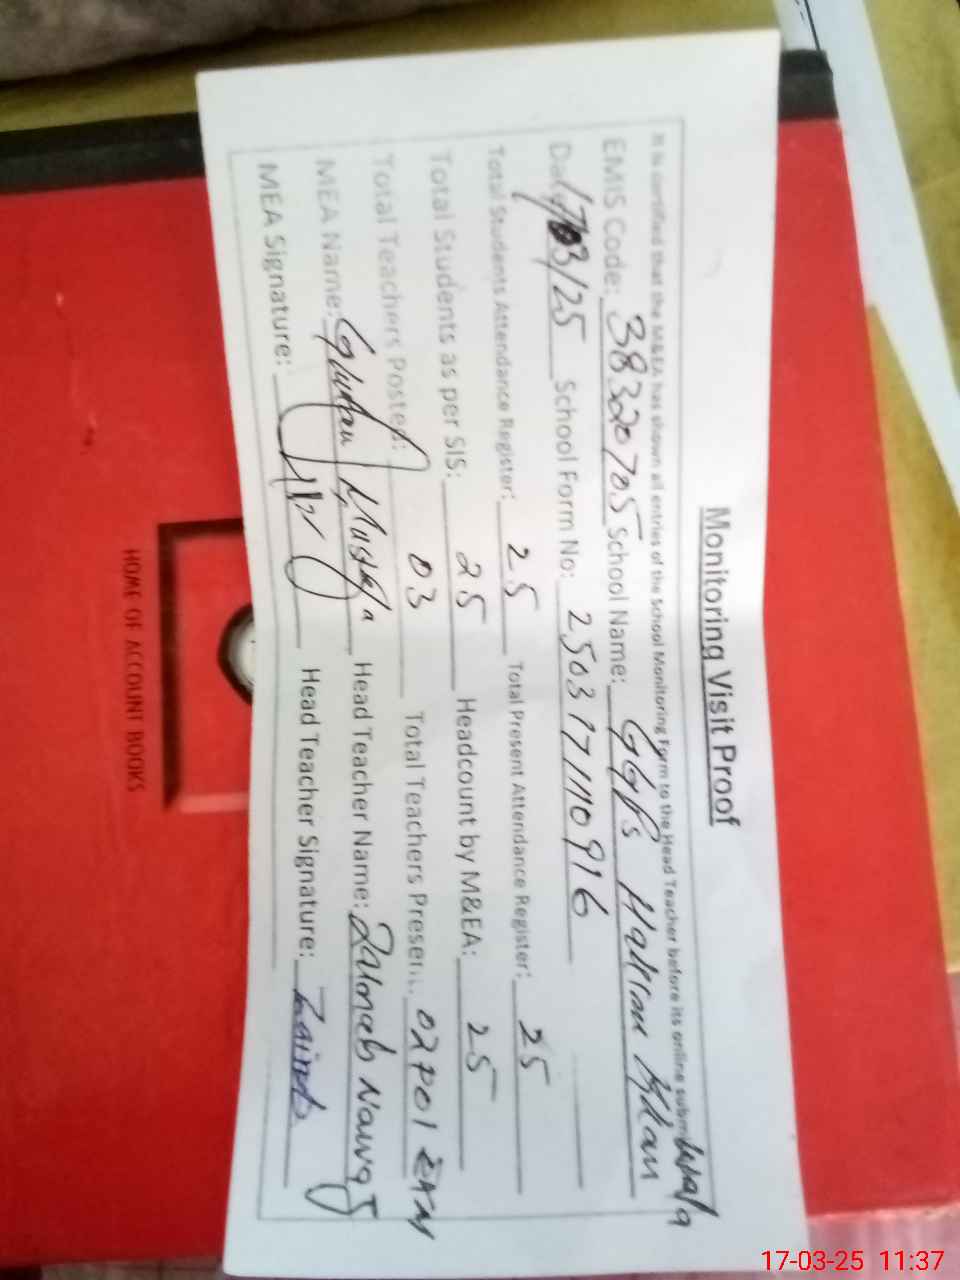 Monitoring Visit Proof
It is certified that the M&EA has shown all entries of the School Monitoring Form to the Head Teacher before its online subm
EMIS Code: 38320705 School Name: GGPS
Date: 17/03/25 School Form No: 250317110916
Total Students Attendance Register: 25 Total Present Attendance Register: 25
Total Students as per SIS: 25 Headcount by M&EA: 25
Total Teachers Posted: 03 Total Teachers Present: 02
MEA Name: Head Teacher Name: Zainab
MEA Signature: Head Teacher Signature: Zainab
HOME OF ACCOUNT BOOKS
17-03-25 11:37